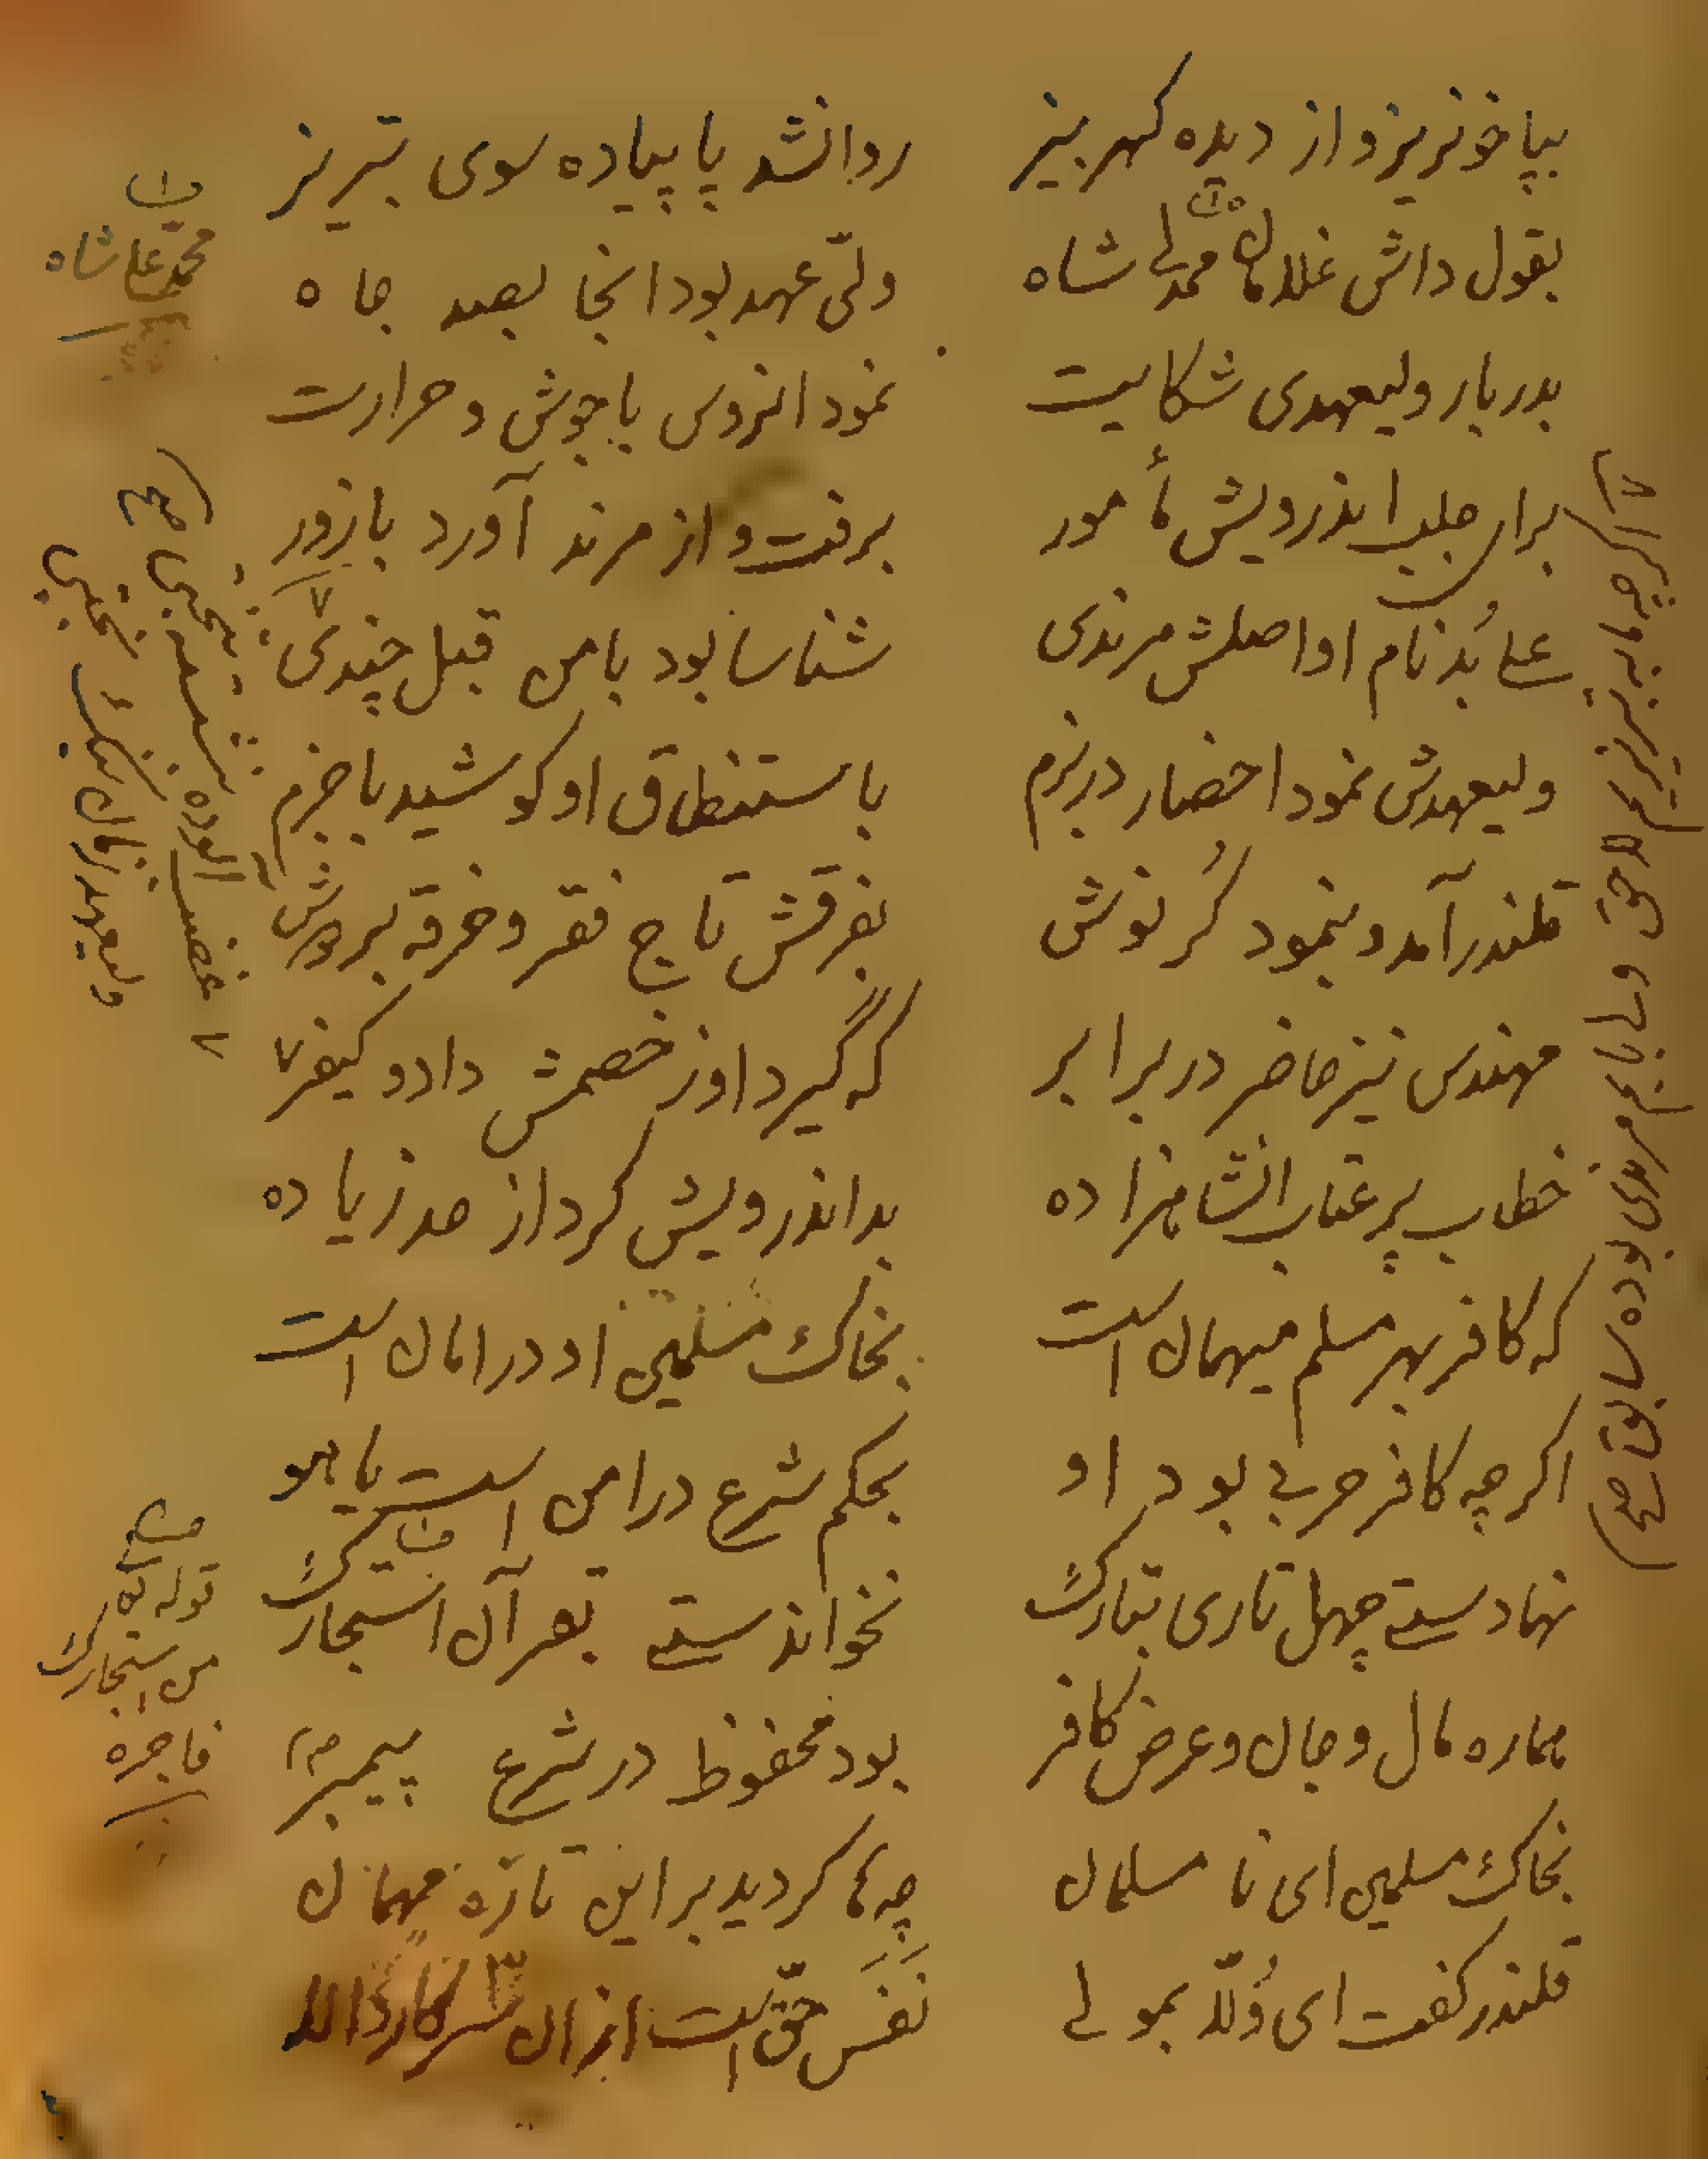 بپا خونریز و از دیده گهر بیز
روانشد پا پیاده سوی تبریز
بقول داش غلامان محمدلی شاه
ولیّ عهد بود انجا بصد جاه
بدربار ولیعهدی شکایت
نمود انروس با جوش و حرارت
برای جلب اندرویش مأمور
برفت و از مرند آورد بازور
علی بُد نام او اصلش مرندی
شناسا بود با من قبل چندی
ولیعهدش نمود احضار در بزم
باستنطاق او کوشید با جزم
قلندر آمد و بنمود کُرنوش
بفرقش تاج فقر و خرقه بر دوش
مهندس نیز حاضر در برابر
که گیرد او ز خصمش داد و کیفر
خطاب پر عتاب انشاهزاده
بداندرویش کرد از حد زیاده
که کافر بهر مسلم میهمان است
بخاک مسلمین او در امان است
اگر چه کافر حربی بود او
بحکم شرع در امن است یا هو
نهادستی چهل تاری بتارک
نخواندستی بقرآن استجارک
هماره مال و جان و عرض کافر
بود محفوظ در شرع پیمبر
بخاک مسلمین ای نا مسلمان
چه‌ها کردید بر این تازه مهمان
قلندر گفت ای وُلّا بمولی
نَفَس حقّ است از ان سرکار والا
محمد علی شاه
اگرچه ما به تبریزیم لاحق ولی بابم مرندی بوده سابق صح
قوله تع
من استجارک
فاجره